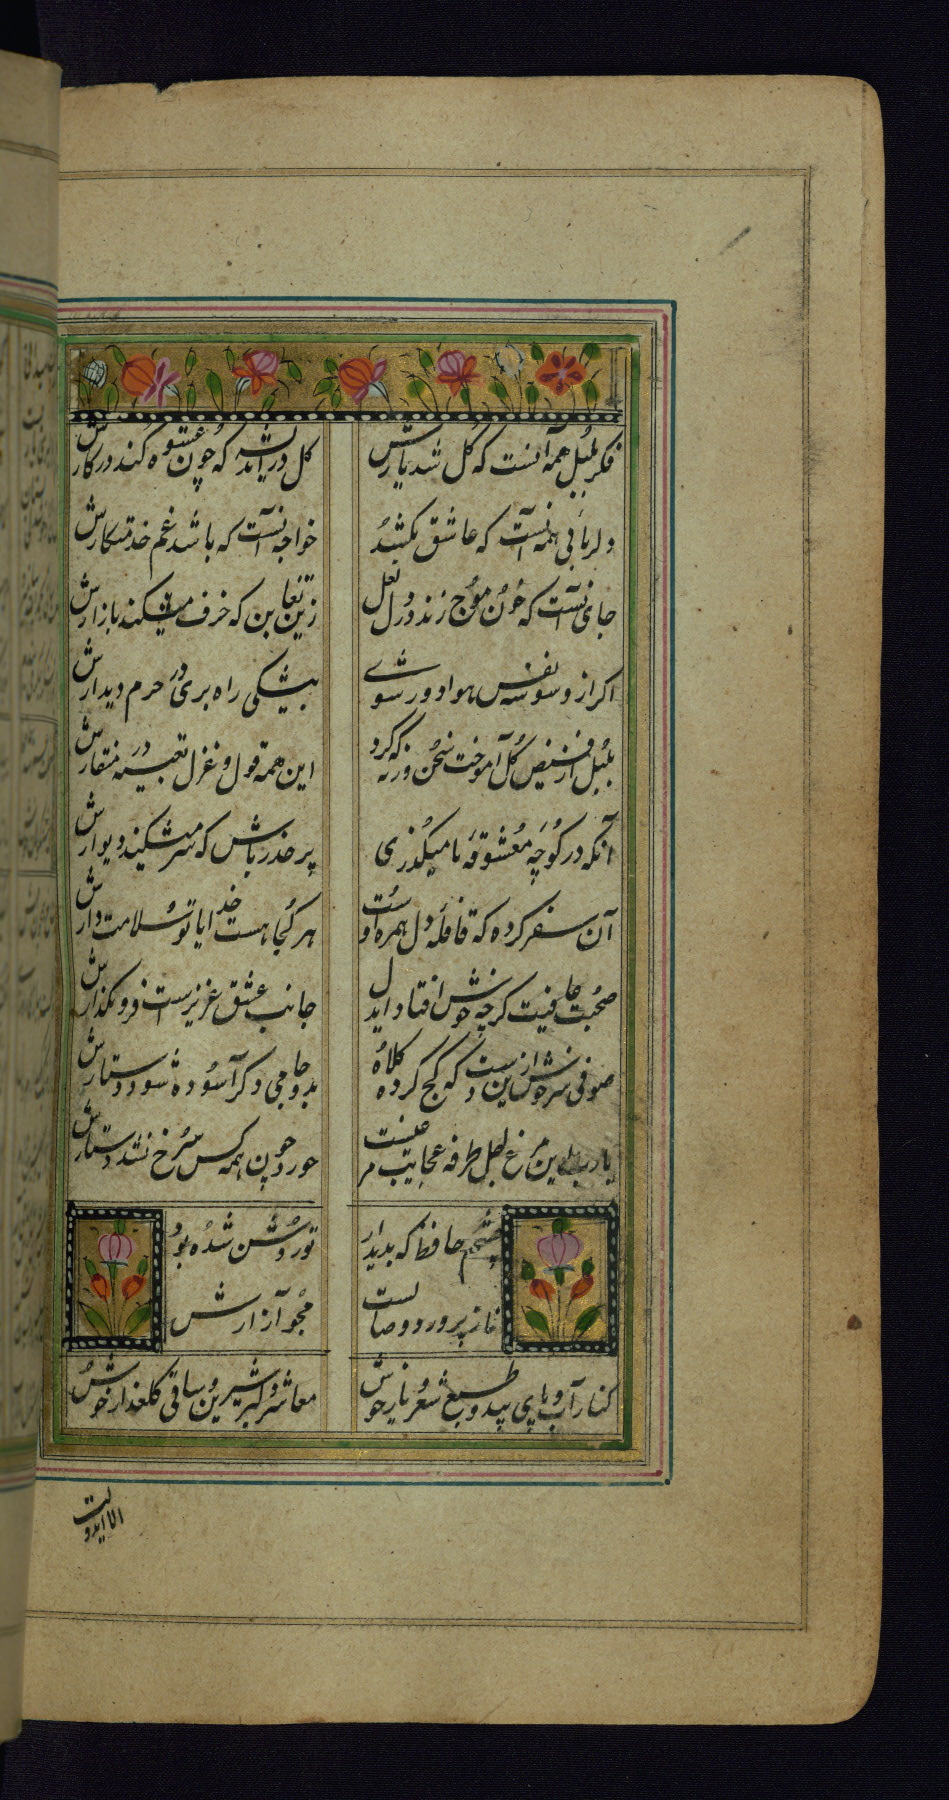 فکر بلبل همه آنست که گل شد یارش    گل در اندیشه که چون عشوه کند در کارش
دلربائی همه آن نیست که عاشق بکشند    خواجه آنست که باشد غم خدمتکارش
جای آنست که خون موج زند در دل لعل    زین تغابن که خزف میشکند بازارش
اگر از وسوسه نفس و هوا دور شوی    بیشکی راه بری در حرم دیدارش
بلبل از فیض گل آموخت سخن ورنه    این همه قول و غزل تعبیه در منقارش
آنکه در کوچه معشوقه ما میگذری    پر حذر باش که سر میشکند دیوارش
آن سفر کرده که قافله دل همره اوست    هر کجا هست خدایا تو سلامت دارش
صحبت عافیت گرچه خوش افتاد ایدل    جانب عشق عزیزست فرو مگذارش
صوفی سرخوش ازین دست که کج کرده کلاه    بدو جامی دگر آشوده شود دستارش
چشم حافظ که بدیدار    تو روشن شده بود
ناز پرورد وصالست    مجو آزارش
کنار آب و پای بید و طبع شعر و یار خوش    معاشر دلبر شیرین و ساقی گلعذار خوش
الا ایدولت